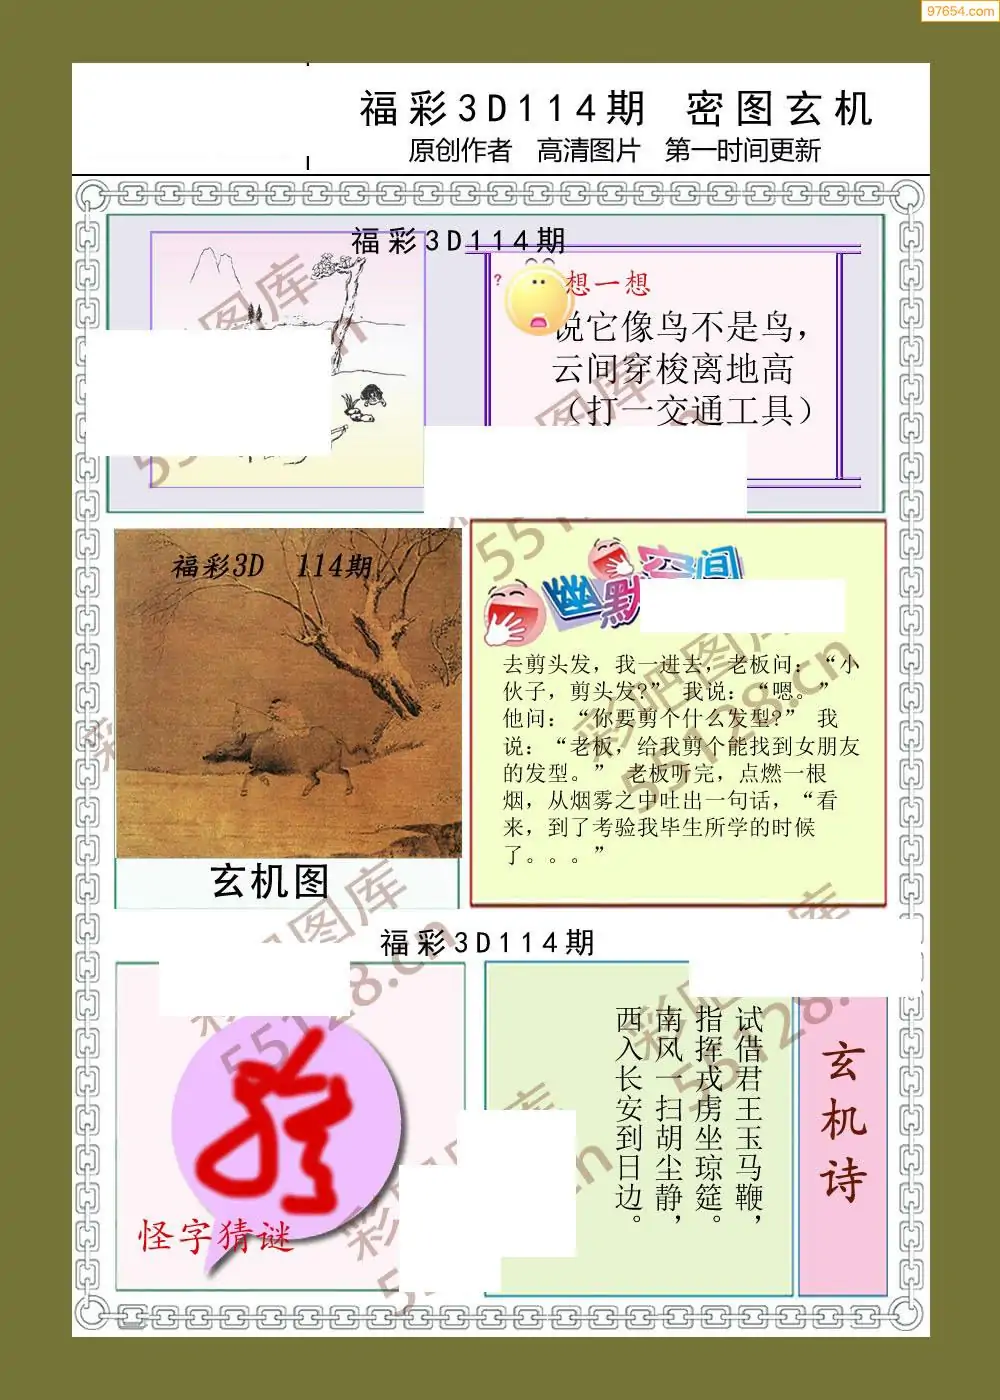 97654.com
福彩3D114期 密图玄机
原创作者 高清图片 第一时间更新
福彩3D114期
?
想一想
说它像鸟不是鸟，
云间穿梭离地高
（打一交通工具）
福彩3D 114期
玄机图
幽默空间
去剪头发，我一进去，老板问：“小
伙子，剪头发?” 我说：“嗯。”
他问：“你要剪个什么发型?” 我
说：“老板，给我剪个能找到女朋友
的发型。” 老板听完，点燃一根
烟，从烟雾之中吐出一句话，“看
来，到了考验我毕生所学的时候
了。。。”
福彩3D114期
怪字猜谜
试借君王玉马鞭，
指挥戎虏坐琼筵。
南风一扫胡尘静，
西入长安到日边。
玄机诗
彩吧图库
55128.cn